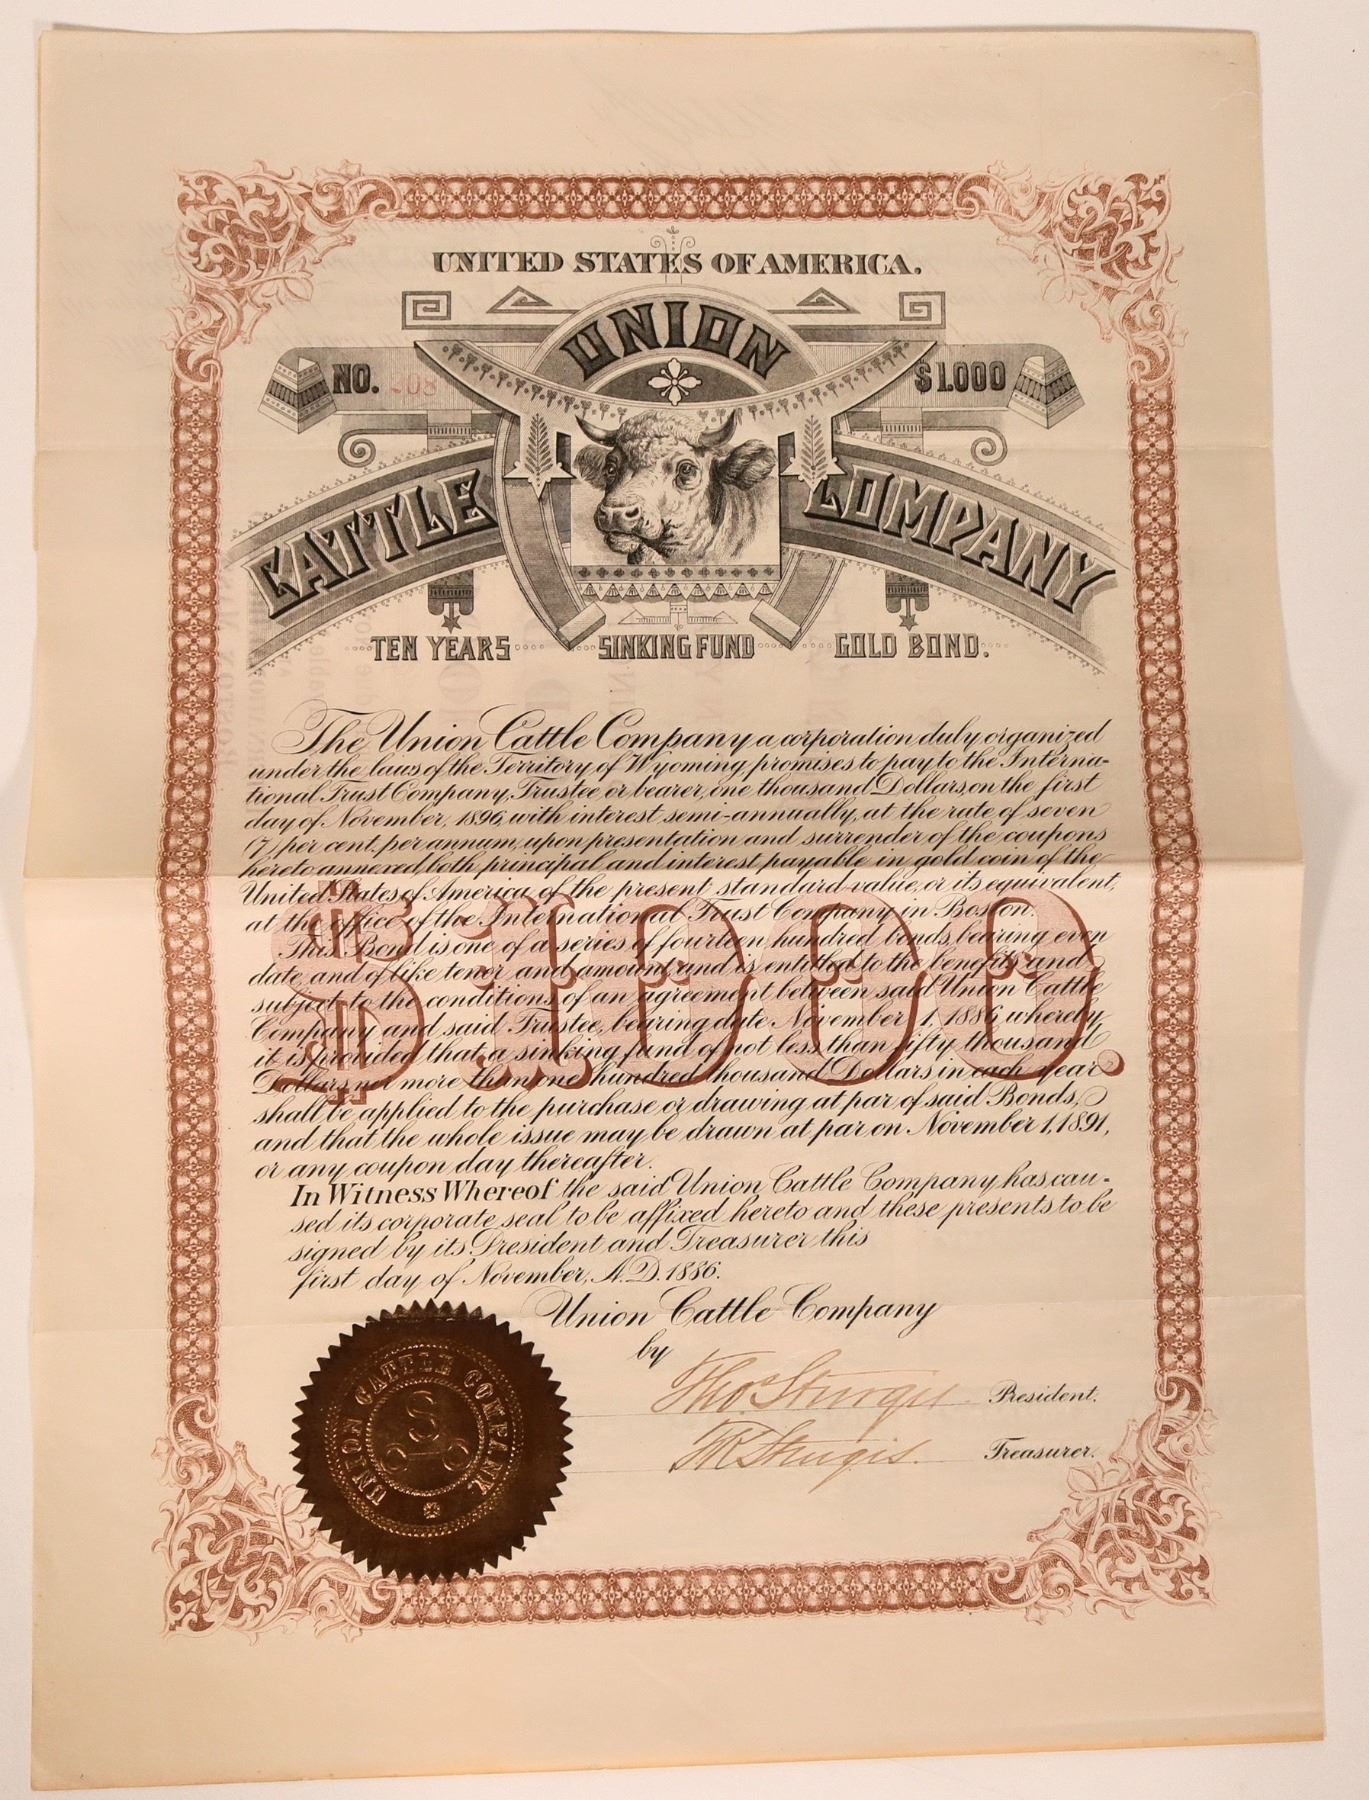 UNITED STATES OF AMERICA.
UNION
NO. 208
$1.000
CATTLE COMPANY
TEN YEARS SINKING FUND GOLD BOND.
The Union Cattle Company a corporation duly organized
under the laws of the Territory of Wyoming promises to pay to the Interna-
tional Trust Company, Trustee or bearer, one thousand Dollars, on the first
day of November, 1896, with interest semi-annually, at the rate of seven
(7) per cent, per annum, upon presentation and surrender of the coupons
hereto annexed, both principal and interest payable in gold coin of the
United States of America, of the present standard value, or its equivalent,
at the office of the International Trust Company in Boston.
This Bond is one of a series of fourteen hundred bonds, bearing even
date, and of like tenor and amount, and is entitled to the benefits and
subject to the conditions of an agreement between said Union Cattle
Company and said Trustee, bearing date November 1, 1886, whereby
it is provided that a sinking fund of not less than fifty thousand
Dollars, nor more than one hundred thousand Dollars in each year
shall be applied to the purchase or drawing at par of said Bonds,
and that the whole issue may be drawn at par on November 1, 1891,
or any coupon day thereafter.
$1000.
In Witness Whereof the said Union Cattle Company, has cau-
sed its corporate seal to be affixed hereto and these presents to be
signed by its President and Treasurer this
first day of November, A.D. 1886.
Union Cattle Company
by
Thos Sturgis President.
F R Sturgis. Treasurer.
UNION CATTLE COMPANY